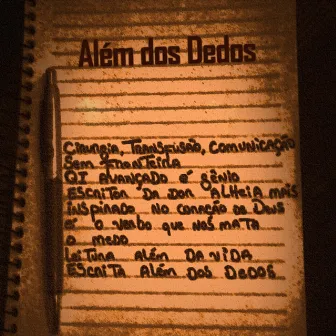 Além dos Dedos
CIRURGIA, TRANSFUSÃO, COMUNICAÇÃO
SEM FRONTEIRA
QI AVANÇADO É GÊNIO
ESCRITOR DA DOR ALHEIA MAIS
INSPIRADO NO CORAÇÃO DE DEUS
É O VERBO QUE NOS MATA
O MEDO
LEITURA ALÉM DA VIDA
ESCRITA ALÉM DOS DEDOS